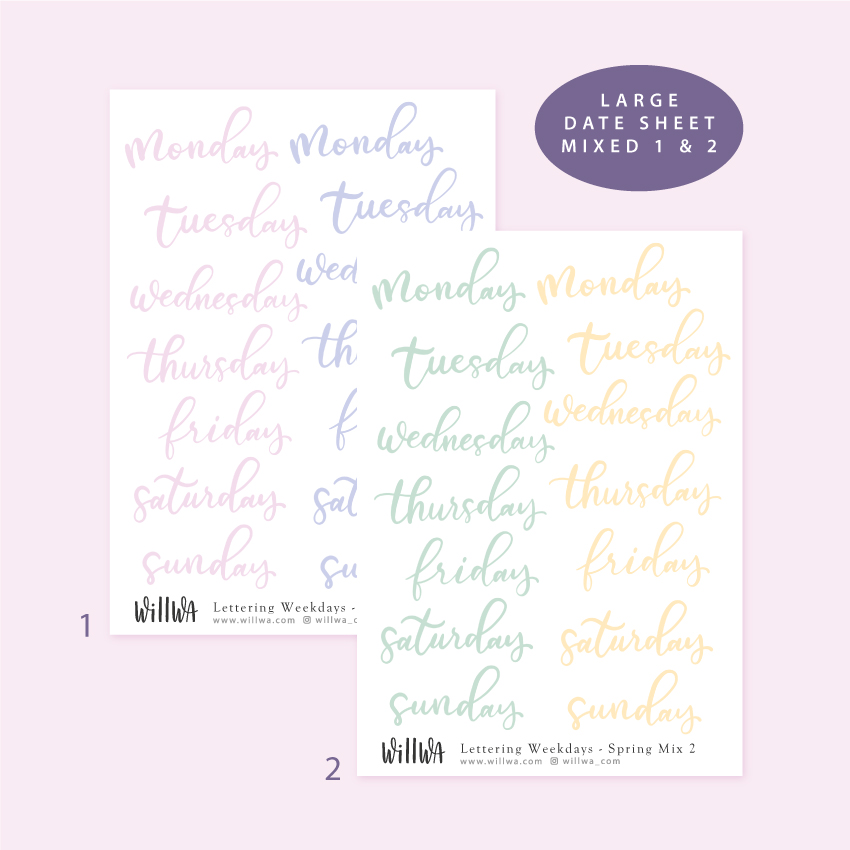 LARGE
DATE SHEET
MIXED 1 & 2
monday
tuesday
wednesday
thursday
friday
saturday
sunday
monday
tuesday
wed
th
f
sat
su
WiLLWA
Lettering Weekdays -
www.willwa.com willwa_c
1
monday
tuesday
wednesday
thursday
friday
saturday
sunday
monday
tuesday
wednesday
thursday
friday
saturday
sunday
WiLLWA
Lettering Weekdays - Spring Mix 2
www.willwa.com willwa_com
2